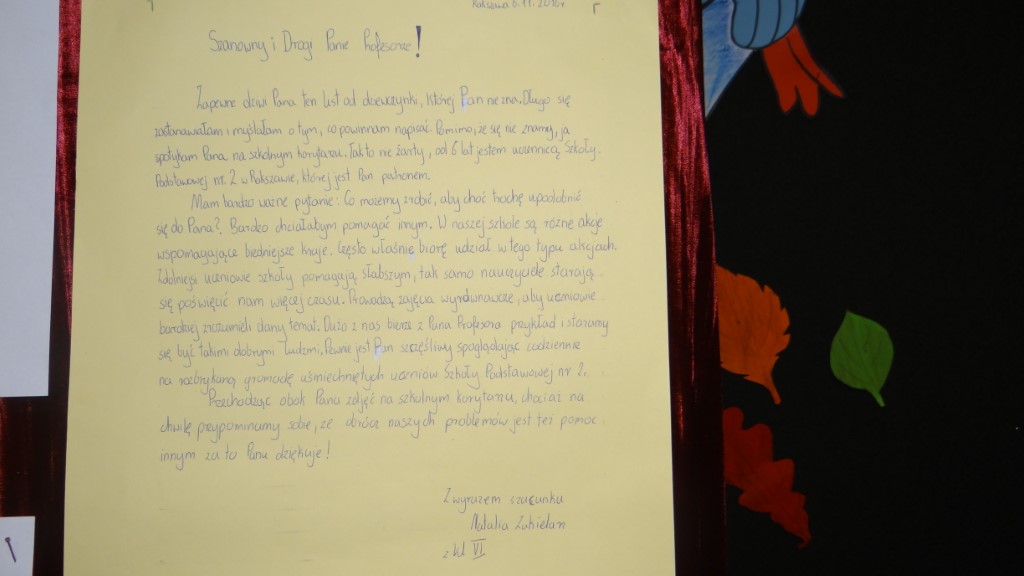 Rakszawa 6.11.2016r
Szanowny i Drogi Panie Profesorze!
Zapewne dziwi Pana ten list od dziewczynki, której Pan nie zna. Długo się
zastanawiałam i myślałam o tym, co powinnam napisać. Pomimo, że się nie znamy, ja
spotykam Pana na szkolnym korytarzu. Tak to nie żarty, od 6 lat jestem uczennicą Szkoły
Podstawowej nr. 2 w Rakszawie, której jest Pan patronem.
Mam bardzo ważne pytanie: Co możemy zrobić, aby choć trochę upodobnić
się do Pana? Bardzo chciałabym pomagać innym. W naszej szkole są różne akcje
wspomagające biedniejsze kraje. Często właśnie biorę udział w tego typu akcjach.
Zdolniejsi uczniowie szkoły pomagają słabszym, tak samo nauczyciele starają
się poświęcić nam więcej czasu. Prowadzą zajęcia wyrównawcze, aby uczniowie
bardziej zrozumieli dany temat. Dużo z nas bierze z Pana Profesora przykład i staramy
się być takimi dobrymi ludźmi. Pewnie jest Pan szczęśliwy spoglądając codziennie
na rozbrykaną gromadę uśmiechniętych uczniów Szkoły Podstawowej nr 2.
Przechodząc obok Pana zdjęć na szkolnym korytarzu, chociaż na
chwilę przypominamy sobie, że oprócz naszych problemów jest też pomoc
innym za to Panu dziękuję!
Z wyrazem szacunku
Natalia
z kl VI